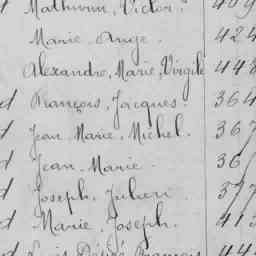 Mathurin, Victor. 409
Marie Ange. 424
Alexandre, Marie, Virgile 448
François, Jacques. 364
Jean Marie, Michel. 367
Jean Marie 36
Joseph, Julien 377
Marie, Joseph. 413
Désiré François 44